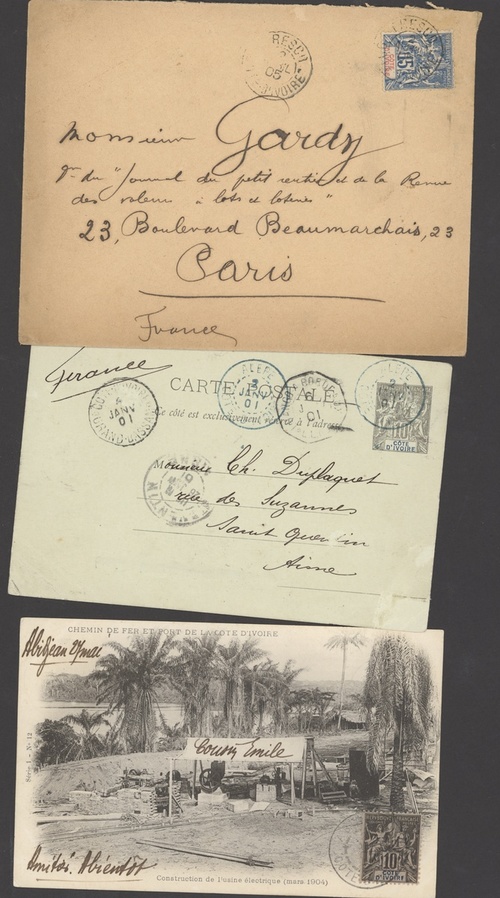 FRESCO
05
CÔTE D'IVOIRE
15
Monsieur Gardy
du "Journal du petit rentier et de la Revue
des valeurs à lots et loteries"
23, Boulevard Beaumarchais, 23
Paris
France
France
CARTE POSTALE
Ce côté est exclusivement réservé à l'adresse
CÔTE D'IVOIRE
JANV
01
GRAND-BASSAM
ALÉPÉ
2
JANV
01
10
CÔTE D'IVOIRE
Monsieur Ch. Duplaquet
rue des Suzannes
Saint Quentin
Aisne
CHEMIN DE FER ET PORT DE LA CÔTE D'IVOIRE
Abidjean
Série I – N° 12
Cousin Emile
Amitiés. Abientôt
RÉPUBLIQUE FRANÇAISE
10
CÔTE D'IVOIRE
Construction de l'usine électrique (mars 1904)